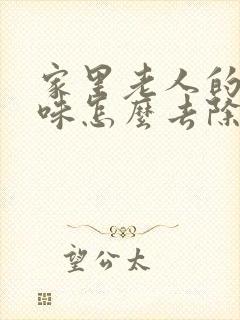 家里老人的
味怎麼去除
望公太